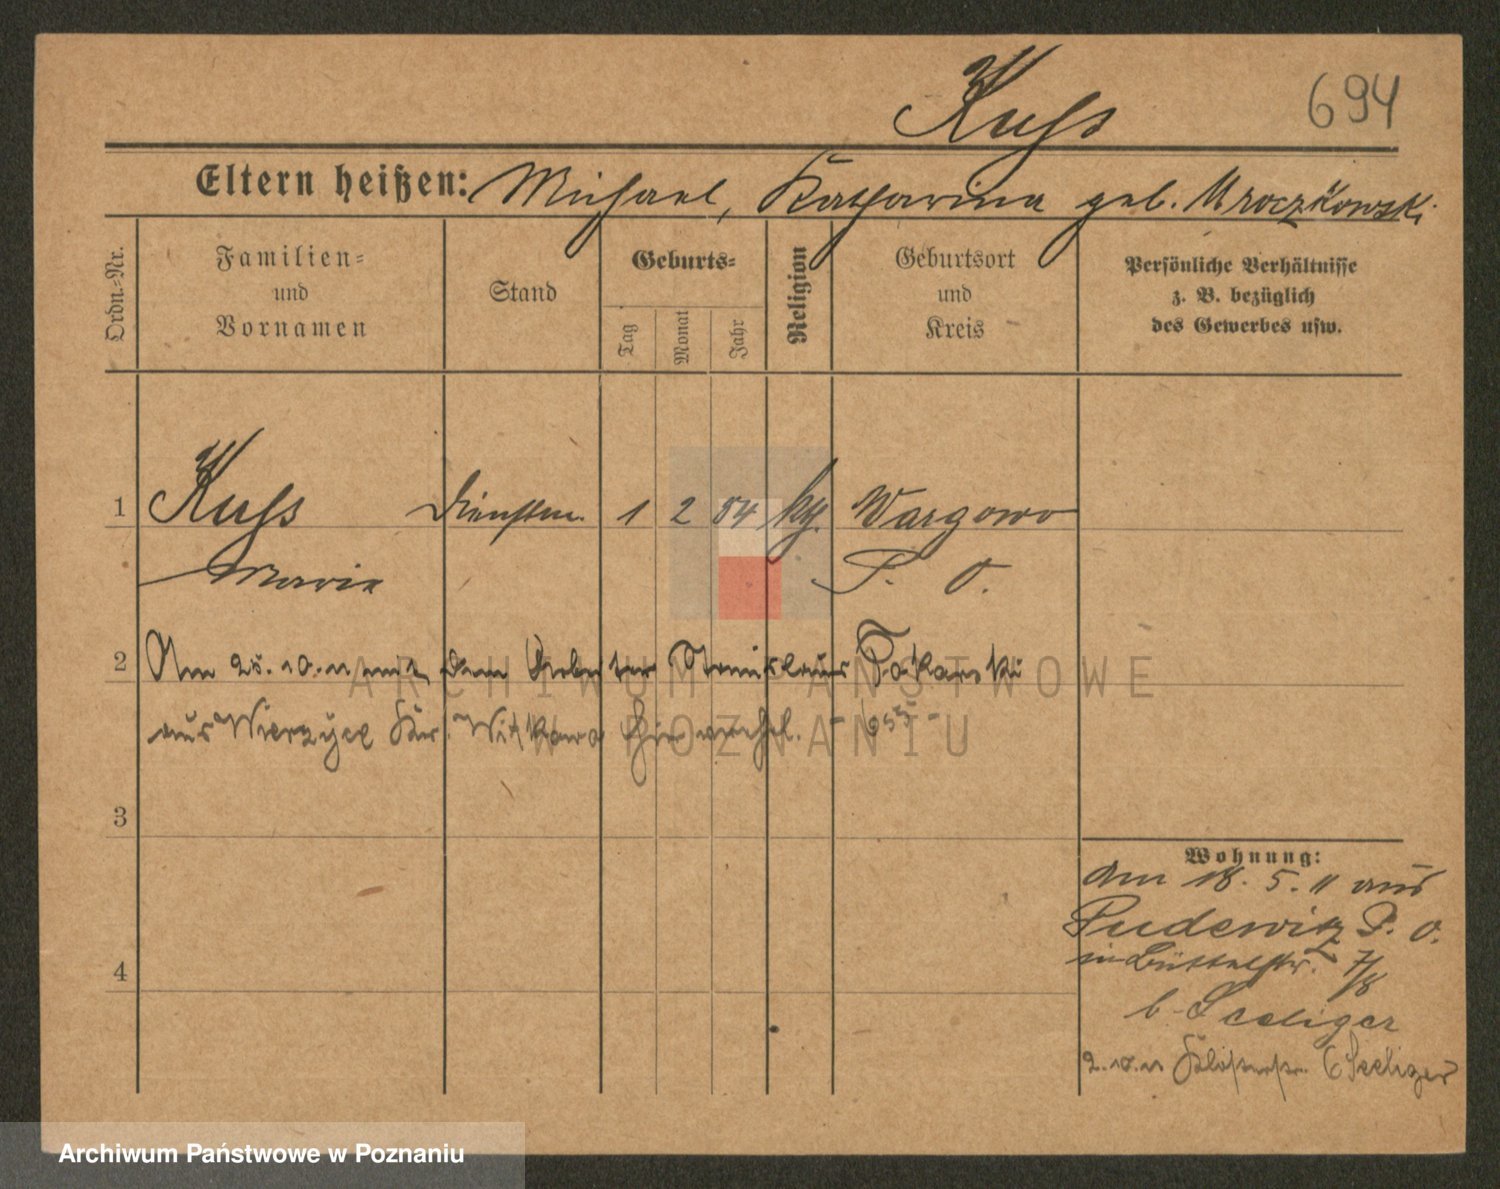 Kuss
694
Eltern heißen: Michael, Katharina geb. Mroczkowski
Ordn.-Nr.
Familien-
und
Vornamen
Stand
Geburts-
Tag
Monat
Jahr
Religion
Geburtsort
und
Kreis
Persönliche Verhältnisse
z. B. bezüglich
des Gewerbes usw.
1 Kuss Dienstm. 1 2 kg. Wargowo
Maria P. O.
2 Am 25.10.11 mit dem Arbeiter Stanislaus Tokarski
aus Kr. Witkowo hier verehel. - 655 -
3
4
Wohnung:
am 18. 5. 11 aus
Pudewitz P. O.
in Büttelstr. 7/8
b. Seeliger
2.10.11 Klosterstr. 6 Seeliger
ARCHIWUM PAŃSTWOWE
W POZNANIU
Archiwum Państwowe w Poznaniu